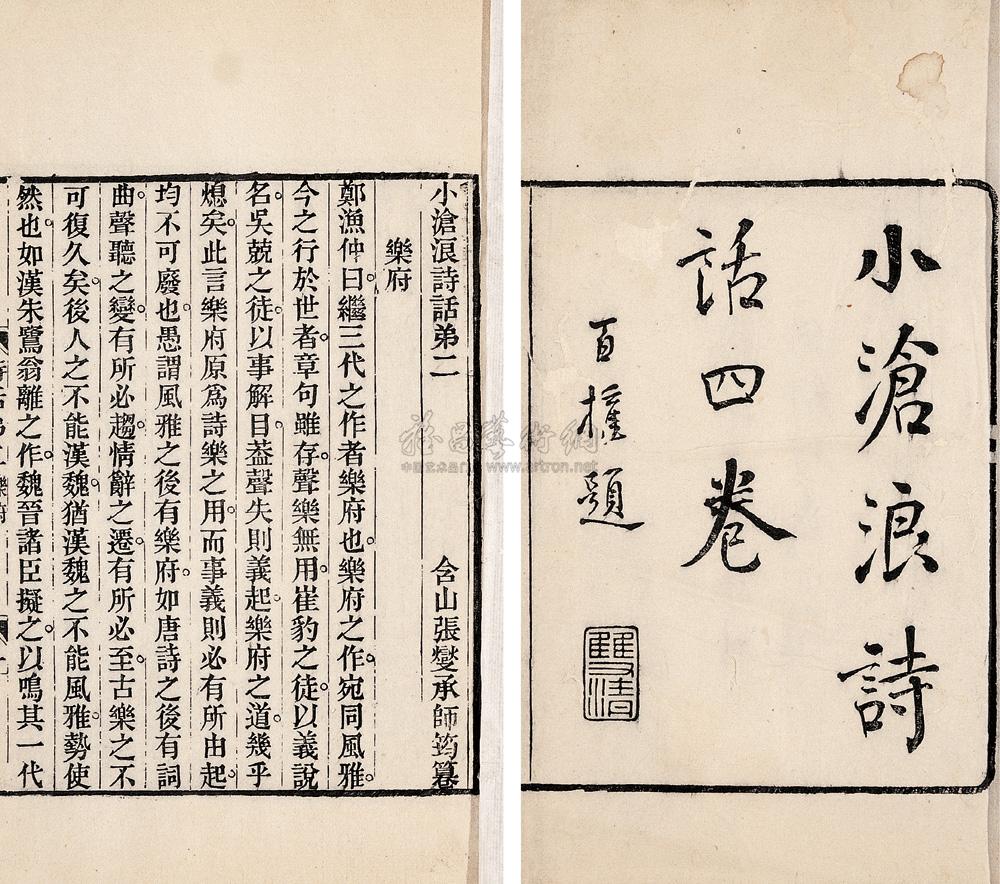 小滄浪詩
話四卷
百催題
雙清
小滄浪詩話弟二
含山張燮承師筠纂
樂府
鄭漁仲曰。繼三代之作者樂府也。樂府之作。宛同風雅。
今之行於世者。章句雖存。聲樂無用。崔豹之徒。以義說
名。吳兢之徒。以事解目。葢聲失則義起。樂府之道。幾乎
熄矣。此言樂府原爲詩樂之用。而事義則必有所由起。
均不可廢也。愚謂風雅之後有樂府。如唐詩之後有詞
曲。聲聽之變。有所必趨。情辭之遷。有所必至。古樂之不
可復久矣。後人之不能漢魏。猶漢魏之不能風雅。勢使
然也。如漢朱鷺翁離之作。魏晉諸臣擬之。以鳴其一代
詩話弟二 樂府
雅昌藝術網
中国艺术品门户 www.artron.net